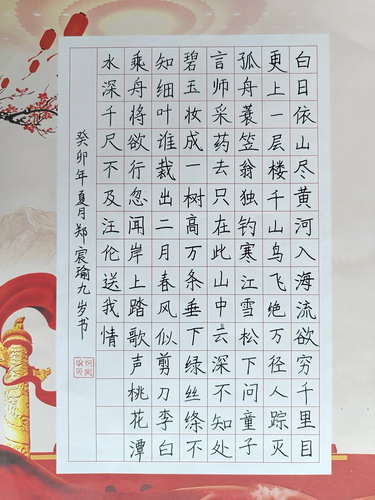 白日依山尽黄河入海流欲穷千里目
更上一层楼千山鸟飞绝万径人踪灭
孤舟蓑笠翁独钓寒江雪松下问童子
言师采药去只在此山中云深不知处
碧玉妆成一树高万条垂下绿丝绦不
知细叶谁裁出二月春风似剪刀李白
乘舟将欲行忽闻岸上踏歌声桃花潭
水深千尺不及汪伦送我情
癸卯年夏月郑宸瑜九岁书